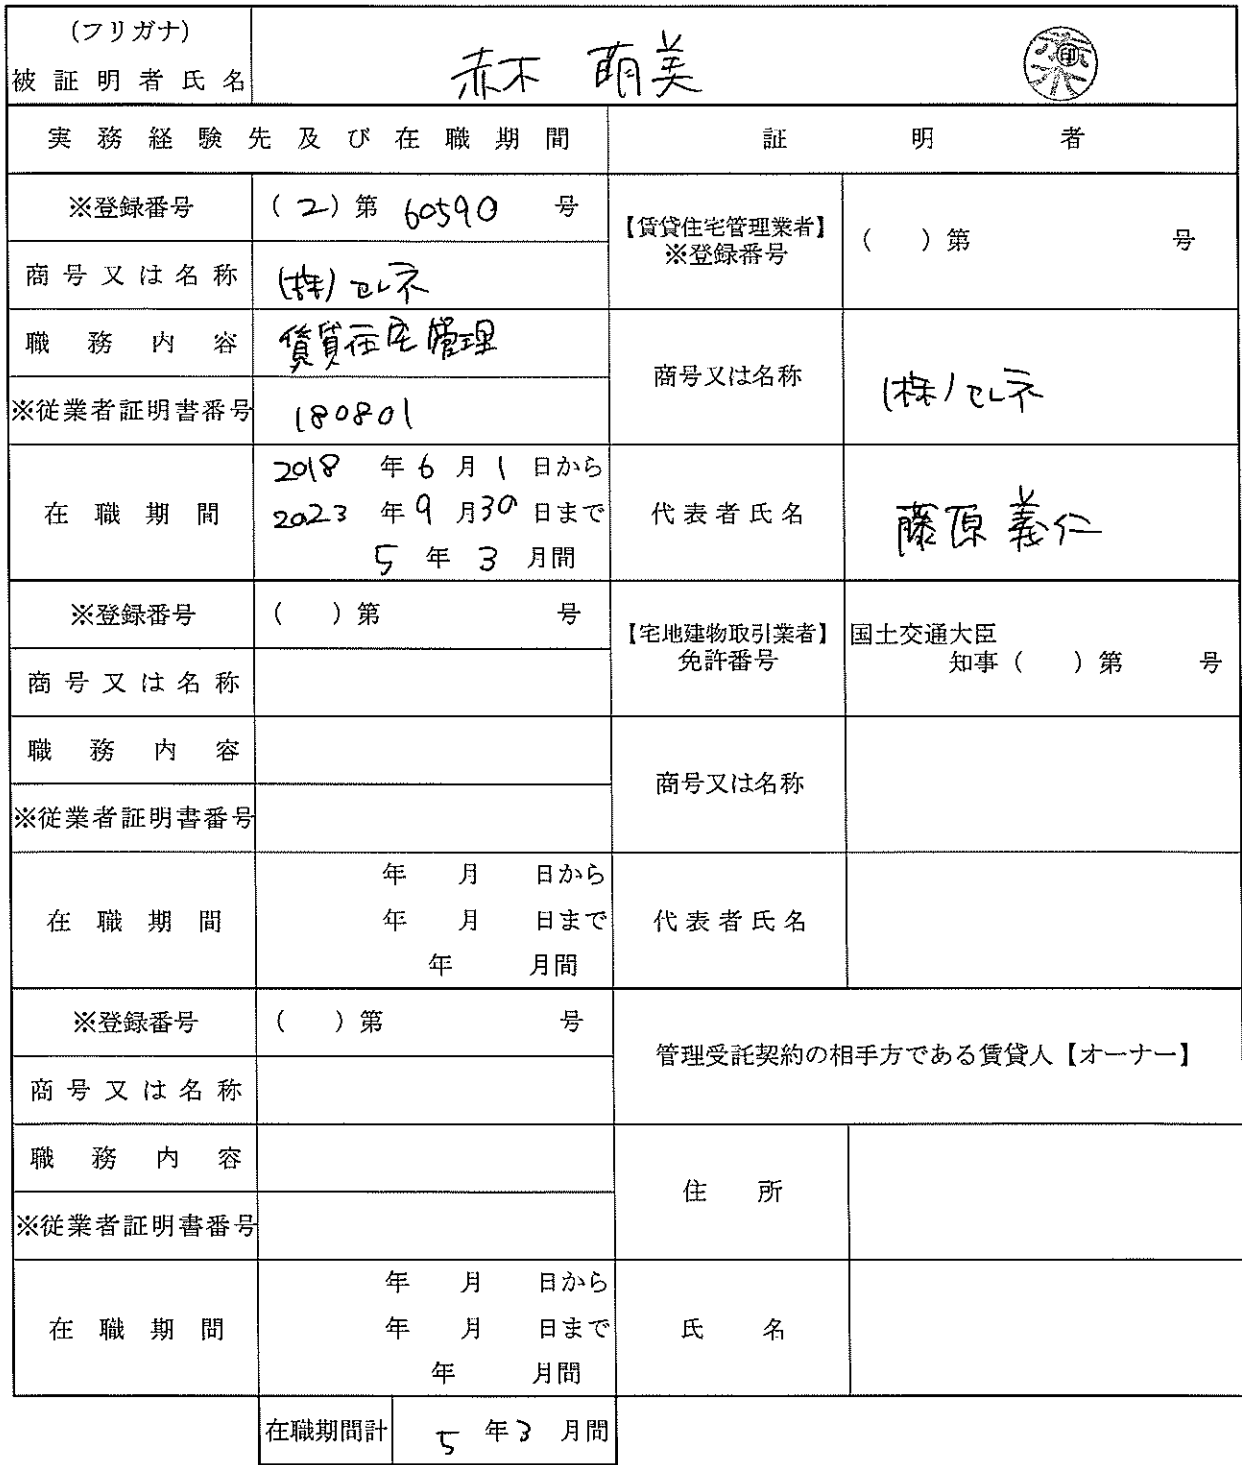 (フリガナ)
被証明者氏名 赤木 萌美 印
実務経験先及び在職期間 証明者
※登録番号 (2)第 60590 号 【賃貸住宅管理業者】※登録番号 ( )第 号
商号又は名称 (株)セレネ
職務内容 賃貸住宅管理 商号又は名称 (株)セレネ
※従業者証明書番号 180801
在職期間 2018 年 6 月 1 日から 代表者氏名 藤原 義仁
2023 年 9 月 30 日まで
5 年 3 月間
※登録番号 ( )第 号 【宅地建物取引業者】免許番号 国土交通大臣
知事( )第 号
商号又は名称
職務内容 商号又は名称
※従業者証明書番号
在職期間 年 月 日から 代表者氏名
年 月 日まで
年 月間
※登録番号 ( )第 号 管理受託契約の相手方である賃貸人【オーナー】
商号又は名称
職務内容 住所
※従業者証明書番号
在職期間 年 月 日から 氏名
年 月 日まで
年 月間
在職期間計 5 年 3 月間